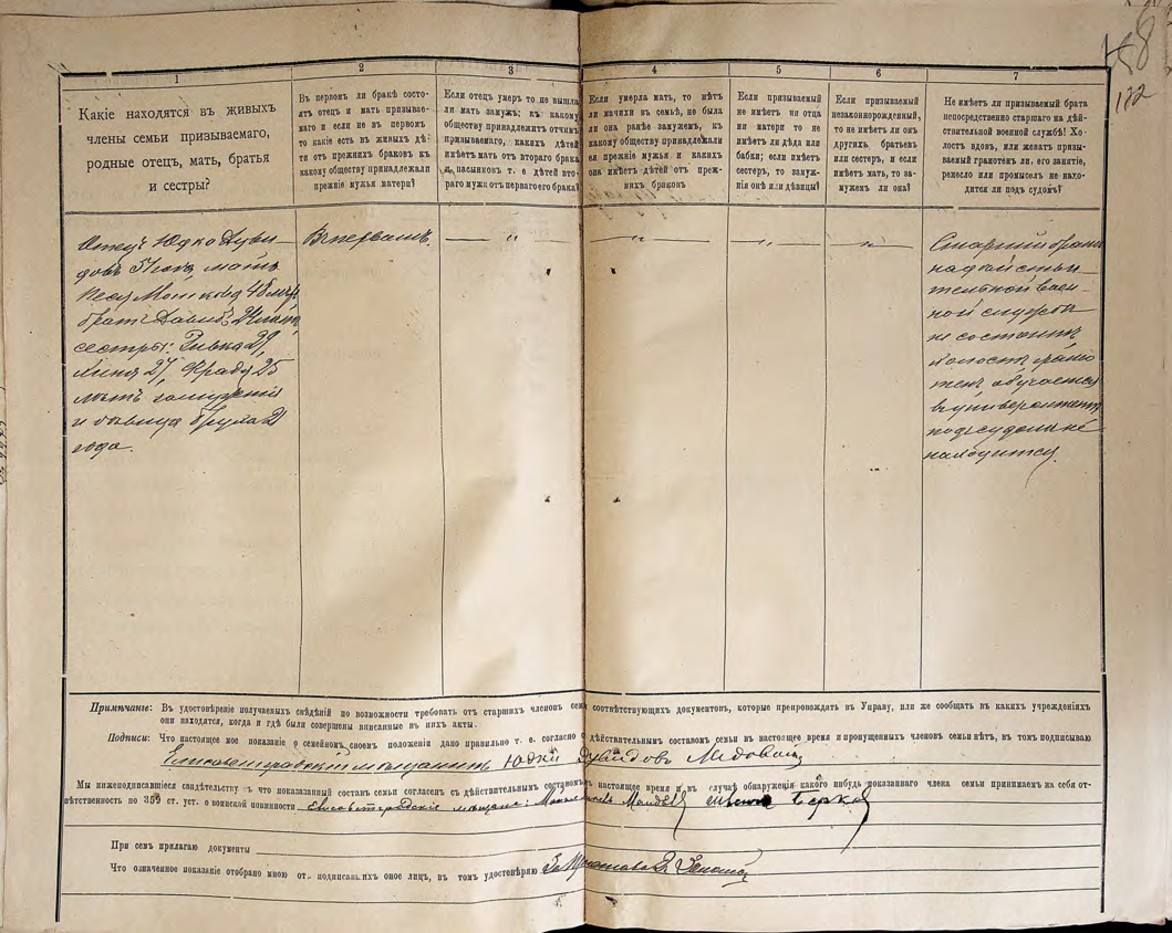 188
172
1
2
3
4
5
6
7
Какіе находятся въ живыхъ
члены семьи призываемаго,
родные отецъ, мать, братья
и сестры?
Въ первомъ ли бракѣ состо-
ятъ отецъ и мать призывае-
маго и если не въ первомъ
то какіе есть въ живыхъ дѣ-
ти отъ прежнихъ браковъ къ
какому обществу принадлежали
прежніе мужья матери?
Если отецъ умеръ то не вышла
ли мать замужъ; къ какому
обществу принадлежитъ отчимъ
призываемаго, какихъ дѣтей
имѣетъ мать отъ втораго брака
и пасынковъ т. е. дѣтей вто-
раго мужа отъ перваго его брака?
Если умерла мать, то нѣтъ
ли мачихи въ семьѣ, не была
ли она ранѣе замужемъ, къ
какому обществу принадлежали
ея прежніе мужья и какихъ
она имѣетъ дѣтей отъ преж-
нихъ браковъ
Если призываемый
не имѣетъ ни отца
ни матери то не
имѣетъ ли дѣда или
бабки; если имѣетъ
сестеръ, то замуж-
нія онѣ или дѣвицы?
Если призываемый
незаконнорожденный,
то не имѣетъ ли онъ
другихъ братьевъ
или сестеръ, и если
имѣетъ мать, то за-
мужемъ ли она?
Не имѣетъ ли призываемый брата
непосредственно старшаго на дѣй-
ствительной военной службѣ? Хо-
лостъ вдовъ, или женатъ призы-
ваемый грамотенъ ли, его занятіе,
ремесло или промыселъ не нахо-
дится ли подъ судомъ?
Отецъ Юдко Дуви-
довъ 51 года, мать
Песя Мошкова 48 лѣтъ
братъ Давидъ 24 лѣтъ,
сестры: Ривка 29,
27, Фрада 25
лѣтъ замужнія
и дѣвица 21
года.
Въ первомъ.
— " —
— " —
— " —
— " —
Старшій братъ
на дѣйстви-
тельной воен-
ной службѣ
не состоитъ
холостъ грамо-
тенъ обучается
въ университетѣ
подъ судомъ не
находится
Примѣчаніе: Въ удостовѣреніе получаемыхъ свѣдѣній по возможности требовать отъ старшихъ членовъ семьи соотвѣтствующихъ документовъ, которые препровождать въ Управу, или же сообщать въ какихъ учрежденіяхъ
они находятся, когда и гдѣ были совершены вписанные въ нихъ акты.
Подписи: Что настоящее мое показаніе о семейномъ своемъ положеніи дано правильно т. е. согласно съ дѣйствительнымъ составомъ семьи въ настоящее время и пропущенныхъ членовъ семьи нѣтъ, въ томъ подписываю
Елисаветградскій мѣщанинъ Юдки Дувидовъ Медовый
Мы нижеподписавшіеся свидѣтельствуемъ, что показаззанный составъ семьи согласенъ съ дѣйствительнымъ составомъ въ настоящее время и въ случаѣ обнаруженія какого нибудь показаннаго члена семьи принимаемъ на себя от-
вѣтственность по 359 ст. уст. о воинской повинности Елисаветградскіе мѣщане:
При семъ прилагаю документы
Что означенное показаніе отобрано мною отъ подписавшихъ оное лицъ, въ томъ удостовѣряю За